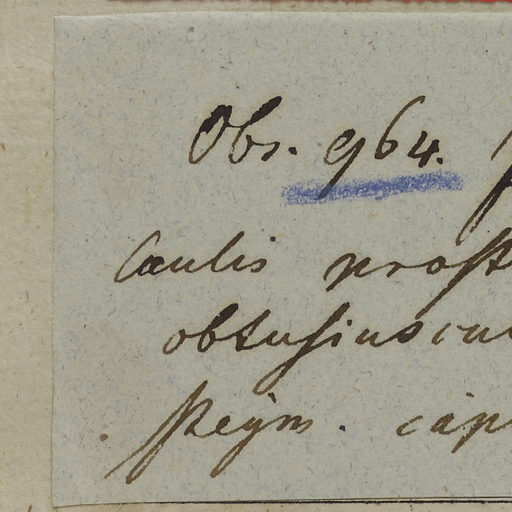 Obs. 964.
Caulis prost
obtusiuscu
capi